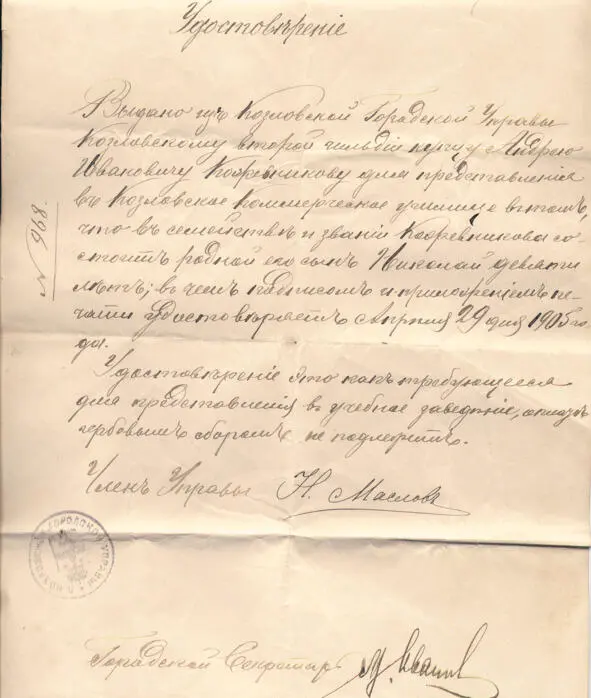 Удостовѣреніе
Выдано изъ Козловской Городской Управы
Козловскому второй гильдіи купцу Андрею
Ивановичу Кожевникову для представленія
въ Козловское Коммерческое училище въ томъ,
что въ семействѣ и званіи Кожевникова со-
стоитъ родной его сынъ Николай девяти
лѣтъ; въ чемъ подписомъ и приложеніемъ пе-
чати удостовѣряетъ Апрѣля 29 дня 1905 го-
да.
Удостовѣреніе это какъ требующееся
для представленія въ учебное заведеніе, оплатѣ
гербовымъ сборомъ не подлежитъ.
Членъ Управы Н. Масловъ
Городской Секретарь
№ 968.
ГОРОДСКОЙ УПРАВЫ